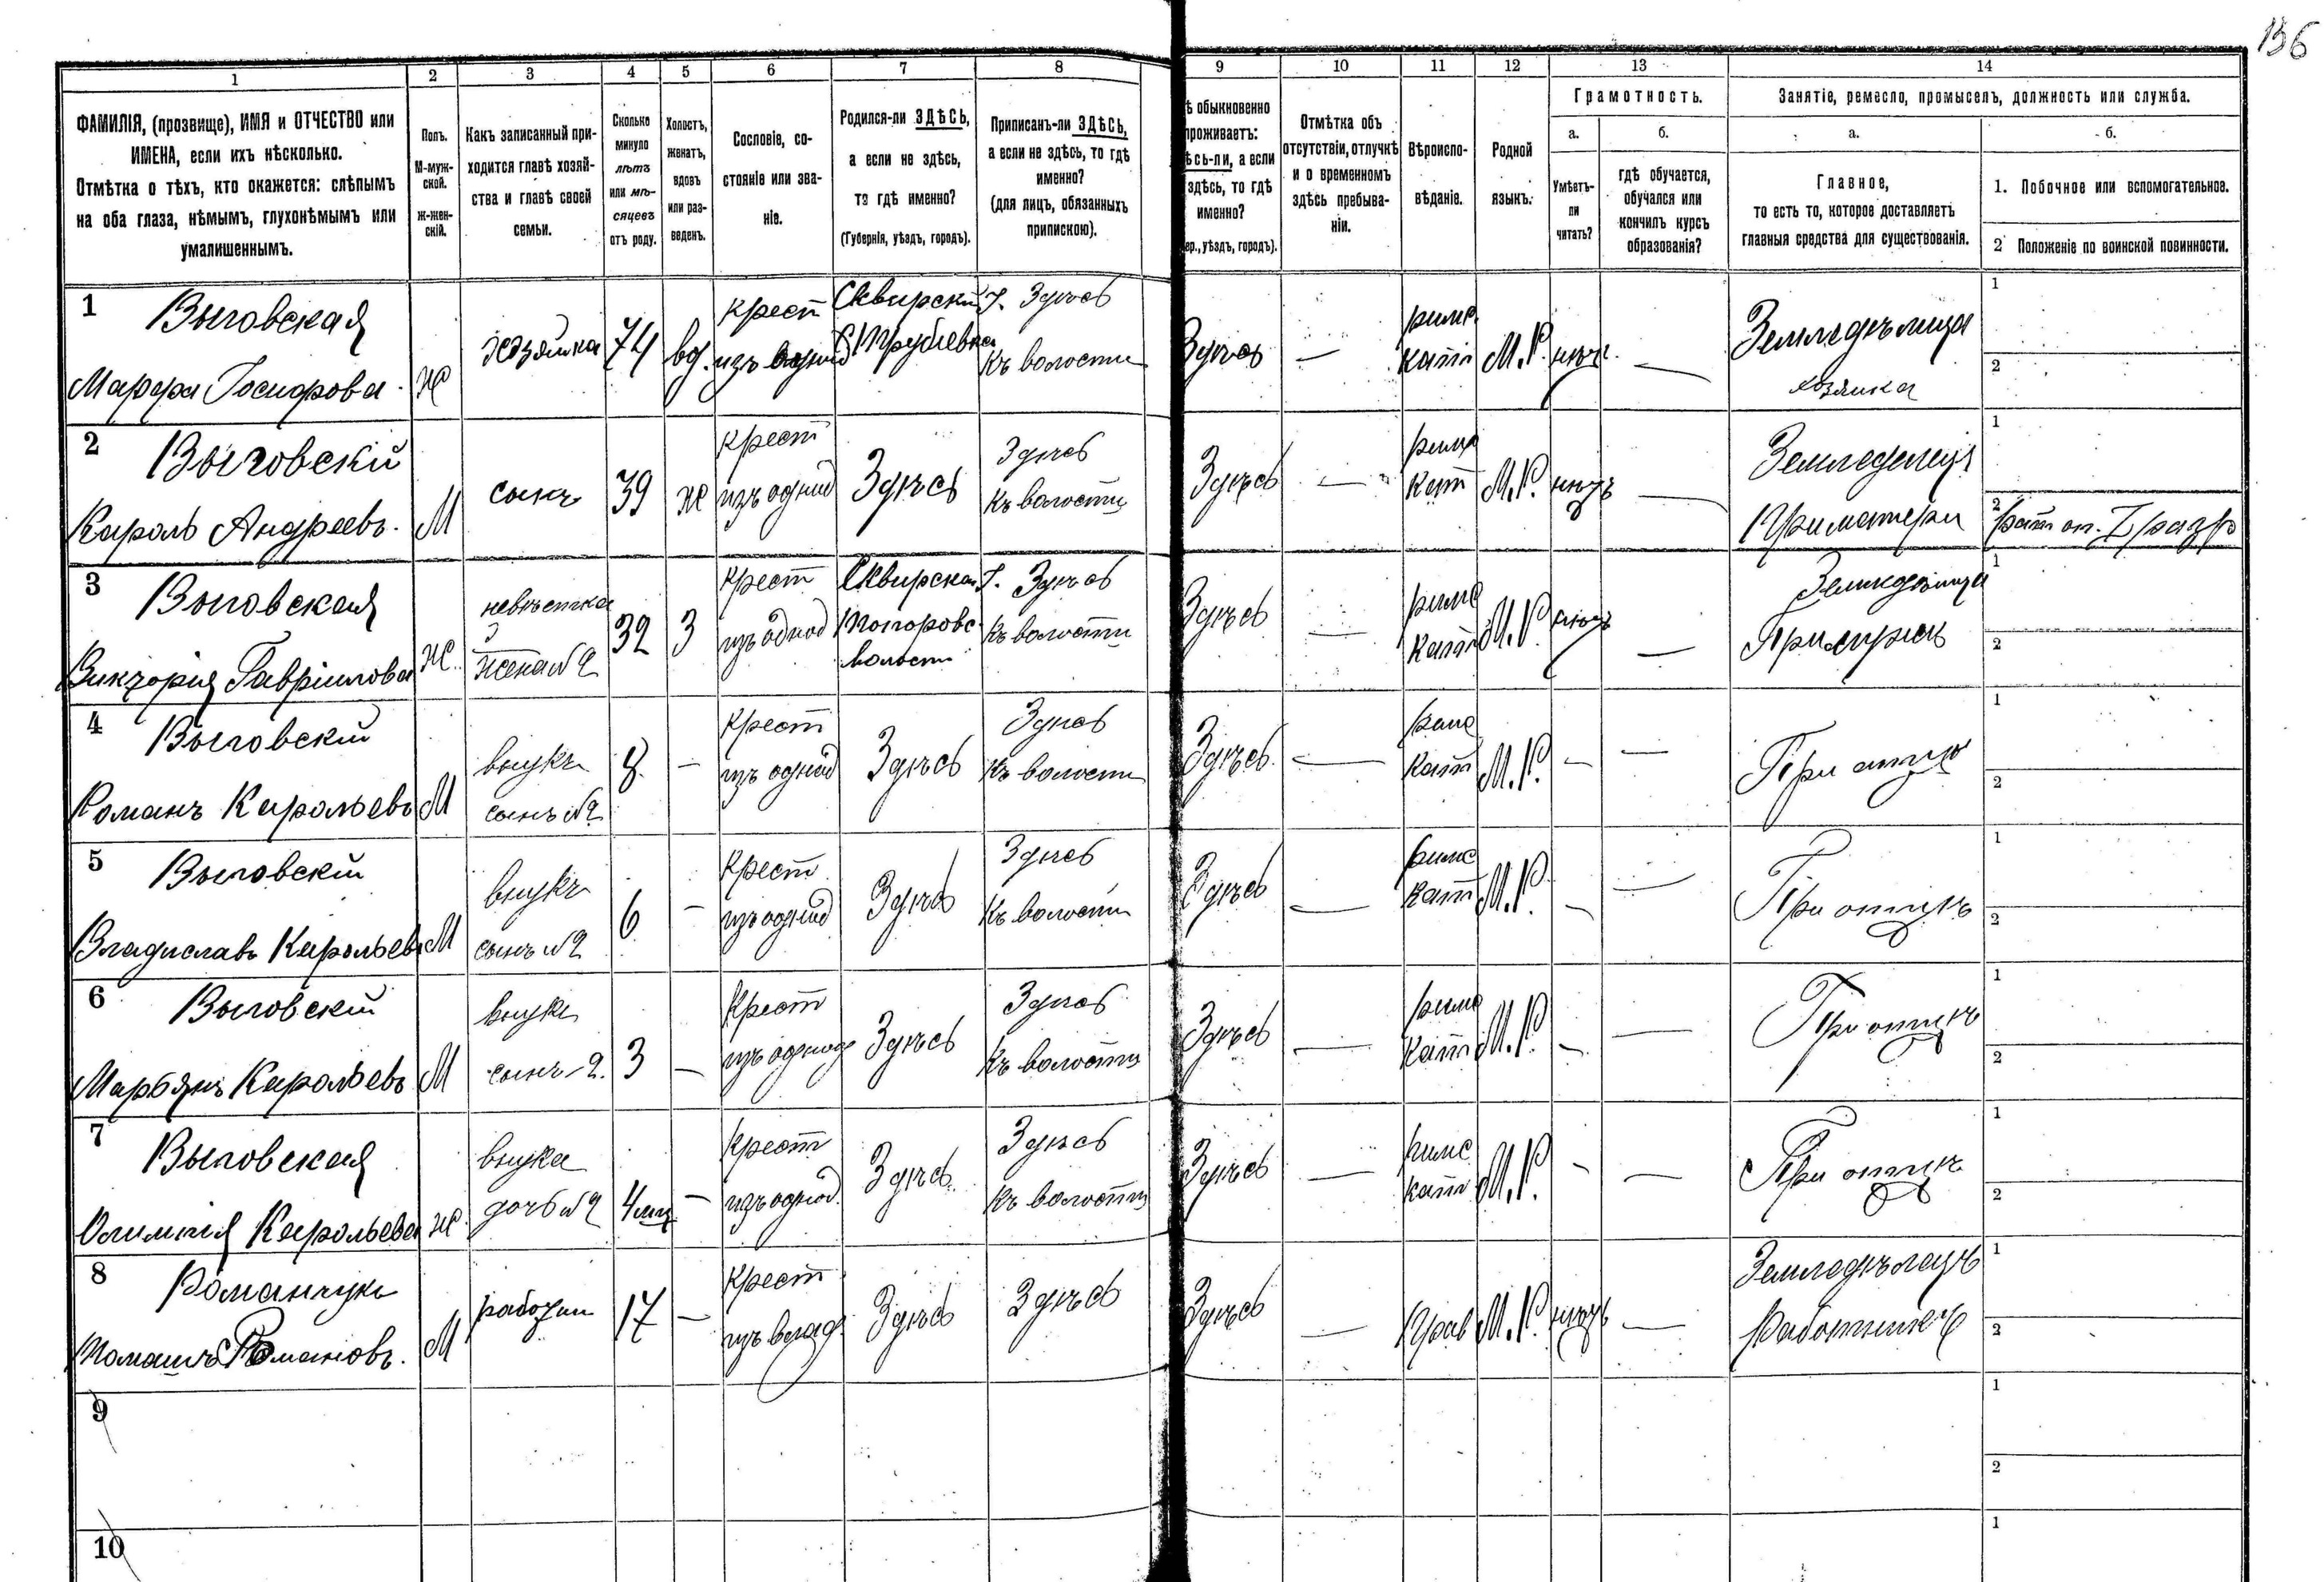 136
1 2 3 4 5 6 7 8 9 10 11 12 13 14
ФАМИЛІЯ, (прозвище), ИМЯ и ОТЧЕСТВО или
ИМЕНА, если ихъ нѣсколько.
Отмѣтка о тѣхъ, кто окажется: слѣпымъ
на оба глаза, нѣмымъ, глухонѣмымъ или
умалишеннымъ.
Полъ.
М-муж-
ской.
Ж-жен-
скій.
Какъ записанный при-
ходится главѣ хозяй-
ства и главѣ своей
семьи.
Сколько
минуло
лѣтъ
или мѣ-
сяцевъ
отъ роду.
Холостъ,
женатъ,
вдовъ
или раз-
веденъ.
Сословіе, со-
стояніе или зва-
ніе.
Родился-ли ЗДѢСЬ,
а если не здѣсь,
то гдѣ именно?
(Губернія, уѣздъ, городъ).
Приписанъ-ли ЗДѢСЬ,
а если не здѣсь, то гдѣ
именно?
(для лицъ, обязанныхъ
припискою).
ѣ обыкновенно
проживаетъ:
ѣсь-ли, а если
здѣсь, то гдѣ
именно?
ер., уѣздъ, городъ).
Отмѣтка объ
отсутствіи, отлучкѣ
и о временномъ
здѣсь пребыва-
ніи.
Вѣроиспо-
вѣданіе.
Родной
языкъ.
Грамотность.
а.
Умѣетъ-
ли
читать?
б.
гдѣ обучается,
обучался или
кончилъ курсъ
образованія?
Занятіе, ремесло, промыселъ, должность или служба.
а.
Главное,
то есть то, которое доставляетъ
главныя средства для существованія.
б.
1. Побочное или вспомогательное.
2 Положеніе по воинской повинности.
1 Выговская
Марфа Іосифова
ж
хозяйка
74
вд.
крест
изъ однод
Сквирский у.
Здѣсь
къ волости
Здѣсь
—
римс
катт
М.Р.
нѣт
—
Земледѣлица
хозяйка
1
2
2 Выговскій
Кароль Андреевъ.
М
сынъ
39
ж
крест
изъ однод
Здѣсь
Здѣсь
къ волости
Здѣсь
—
римс
кат
М.Р.
нѣтъ
—
Земледелецъ
При матери
1
2 рат оп. I разр
3 Выговская
Викторія Гавріилова
ж.
невѣстка
жена №2
32
З
крест
изъ однод
Сквирская
волости
Здѣсь
къ волости
Здѣсь
—
римс
катт
М.Р.
нѣтъ
—
Земледѣлица
При мужѣ
1
2
4 Выговскій
Романъ Карольевъ
М
внукъ
сынъ №2
8
—
крест
изъ однод
Здѣсь
Здѣсь
къ волости
Здѣсь
—
римс
катт
М.Р.
—
—
При отцѣ
1
2
5 Выговскій
Владиславъ Карольевъ
М
внукъ
сынъ №2
6
—
крест
изъ однод
Здѣсь
Здѣсь
къ волости
Здѣсь
—
римс
катт
М.Р.
—
—
При отцѣ
1
2
6 Выговскій
Марьянъ Карольевъ
М
внукъ
сынъ-2.
3
—
крест
изъ однод
Здѣсь
Здѣсь
къ волости
Здѣсь
—
римс
катт
М.Р.
—
—
При отцѣ
1
2
7 Выговская
Олимпія Карольева
ж.
внука
дочь №2
4 мц
—
крест
изъ однод.
Здѣсь
Здѣсь
къ волости
Здѣсь
—
римс
катт
М.Р.
—
—
При отцѣ
1
2
8 Романчукъ
Романовъ.
М
рабочии
17
—
крест
изъ влад.
Здѣсь
Здѣсь
Здѣсь
—
Прав
М.Р.
нѣтъ
—
Земледѣлецъ
Работникъ
1
2
9
1
2
10
1